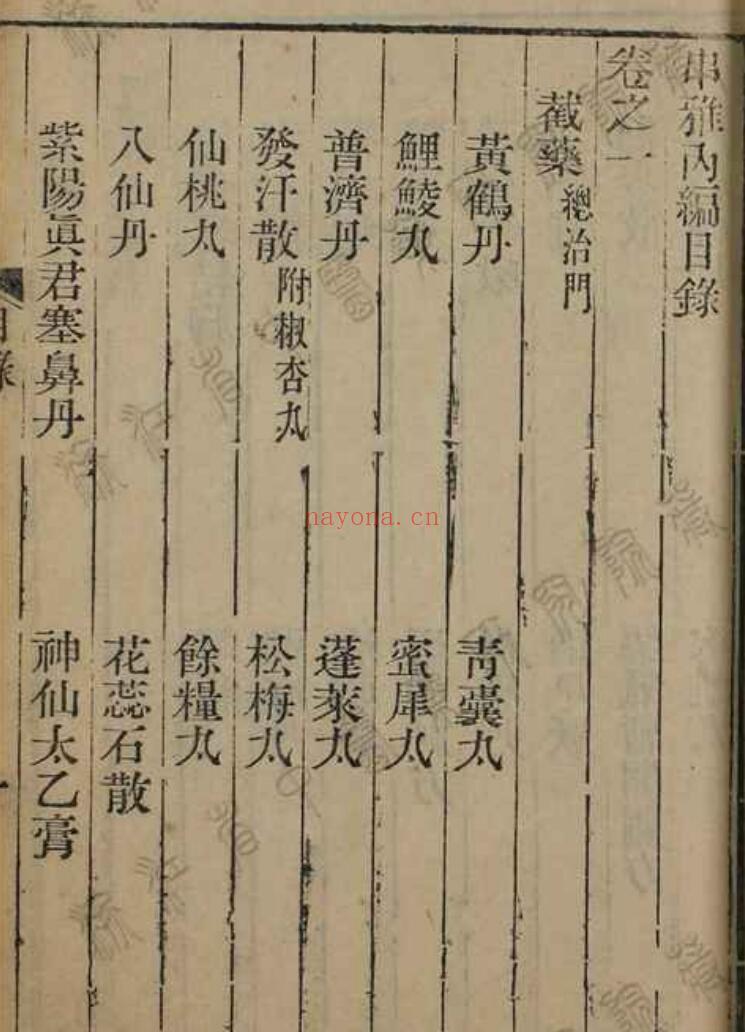 串雅内編目錄
卷之一
截藥 總治門
黃鶴丹 青囊丸
鯉鯪丸 蜜犀丸
普濟丹 蓬萊丸
發汗散 附椒杏丸 松梅丸
仙桃丸 餘糧丸
八仙丹 花蕊石散
紫陽眞君塞鼻丹 神仙太乙膏
目錄
一
nayona.cn